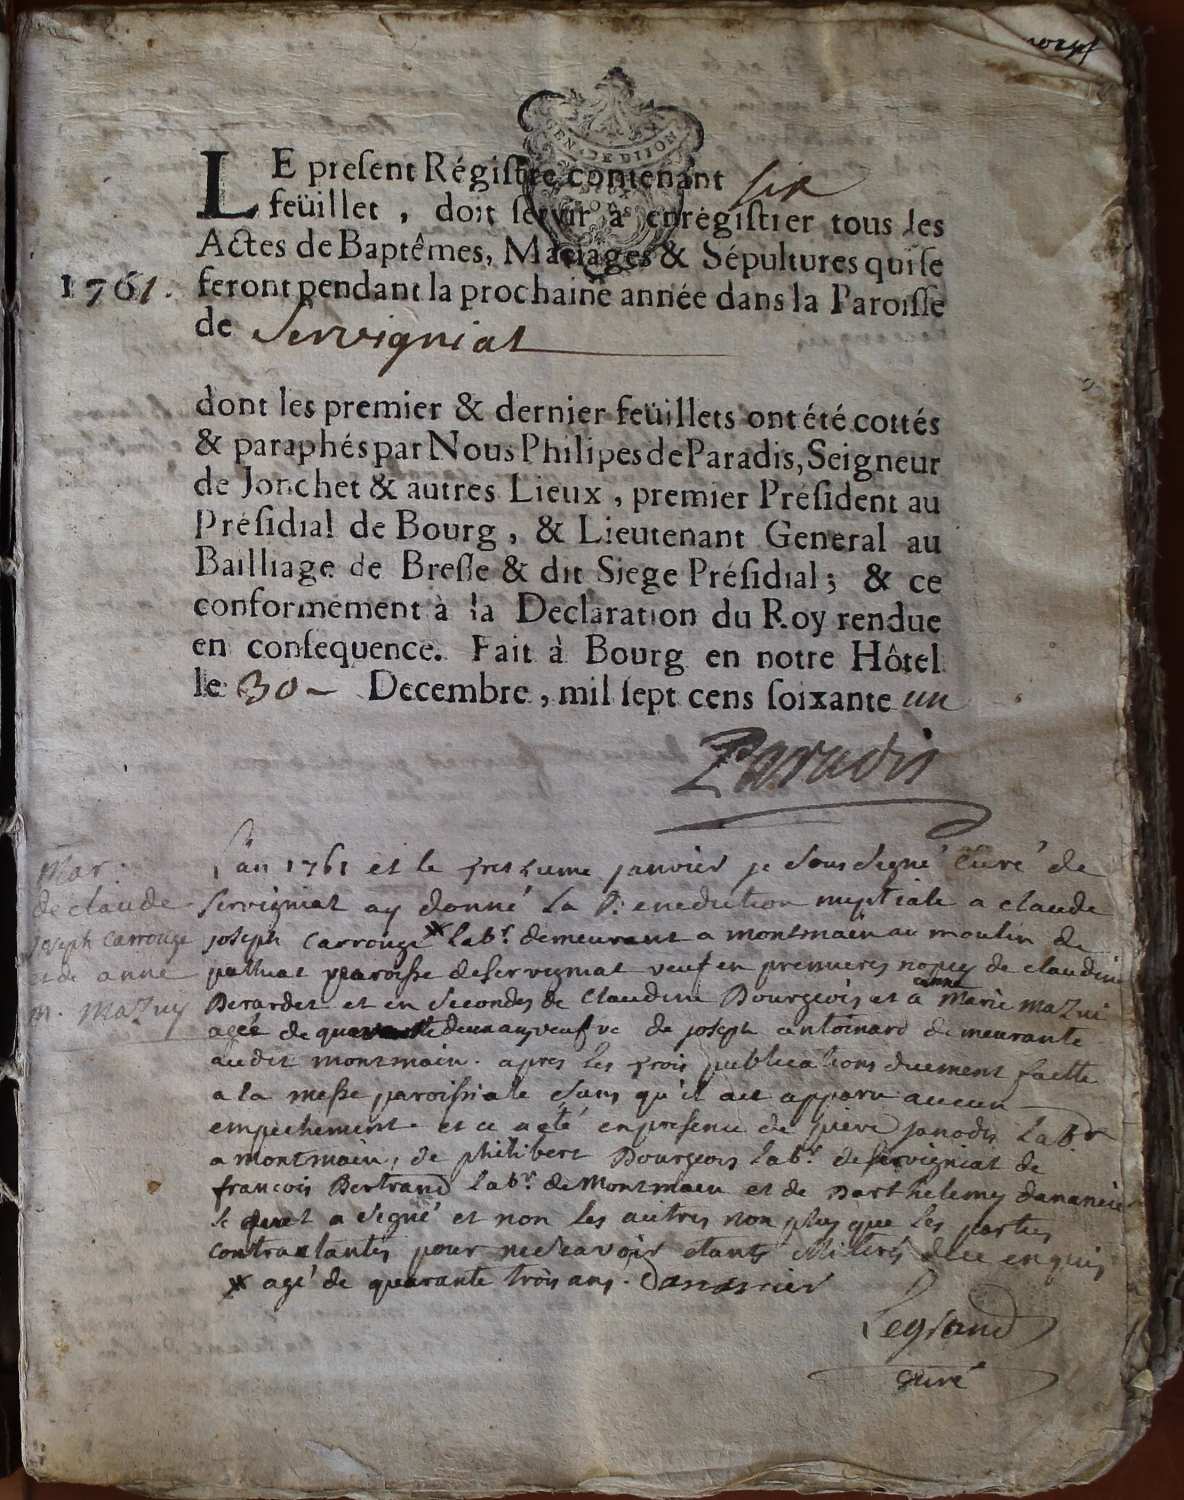 GEN. DE DIJON
LE preſent Régiſtre contenant six
feüillet, doit ſervir à enrégiſtrer tous les
Actes de Baptêmes, Mariages & Sépultures qui ſe
1761. feront pendant la prochaine année dans la Paroiſſe
de Servigniat
dont les premier & dernier feüillets ont été cottés
& paraphés par Nous Philipes de Paradis, Seigneur
de Jonchet & autres Lieux, premier Préſident au
Préſidial de Bourg, & Lieutenant General au
Bailliage de Breſſe & dit Siege Préſidial; & ce
conformément à la Declaration du Roy rendue
en conſequence. Fait à Bourg en notre Hôtel
le 30 – Decembre, mil ſept cens ſoixante un
Paradis
Mar.
de claude
joseph Carrouge
et de anne
m. Mazuy
L'an 1761 et le treizieme janvier je Sous Segné Curé de
Servigniat ay donné la Benediction nuptiale a claude
joseph Carrouge x labr. demeurant a montmain au moulin de
paroisse deservigniat veuf en premieres nopces de claudine
Berardet et en Secondes de Claudine Bourgeois et a anne Marie Mazui
agée de quarante deux ans veufve de joseph antoinard demeurante
audit montmain. apres les trois publications duement faitte
a la messe paroissiale Sans qu'il ait apparu aucun
empechement et ce a eté en presence de piere janodis labr
a montmain, de philibert Bourgeois labr. deservigniat de
francois Bertrand labr. de Montmain et de Barthelemy danancier
le quel a Segné et non les autres non plus que les parties
contractantes pour ne scavoir etants illiterés de ce enquis
x agé de quarante trois ans. Danancier
Legrand
curé